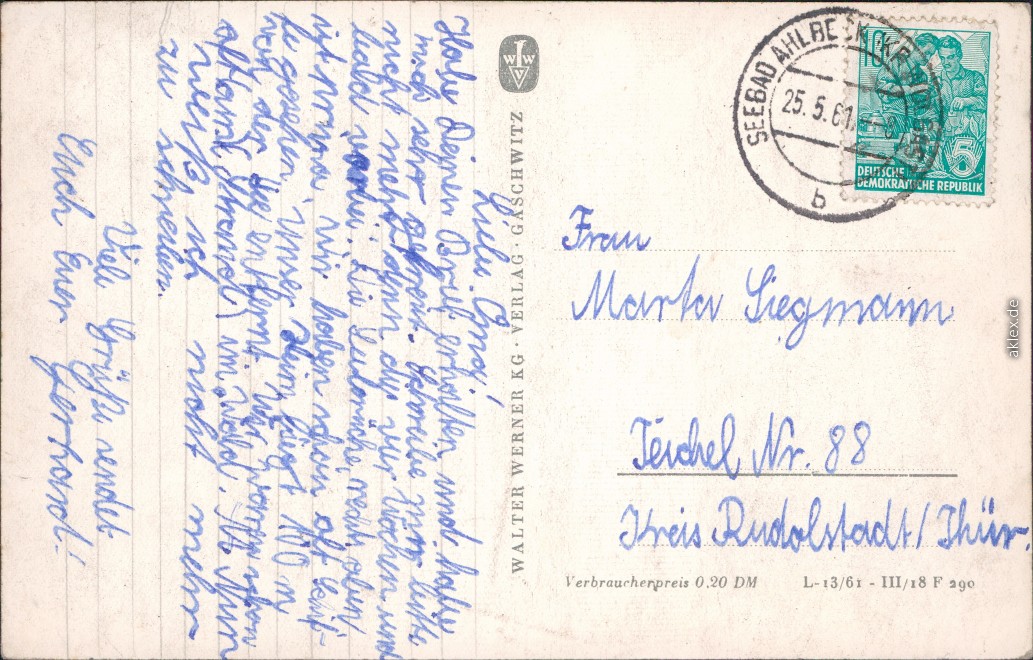 Liebe Oma!
Habe Deinen Brief erhalten und habe
mich sehr gefreut. Schreibe nun bitte
nicht mehr, denn die vier Wochen sind
bald vorbei. Die Ostsee
ist prima. Wir haben schon oft Schif-
fe gesehen. Unser Heim liegt 100 m
von der See entfernt. Wir waren schon
oft am Strand und im Wald. Nun
weiß ich nicht mehr
zu schreiben.
Viele Grüße sendet
Euch Euer Gerhard!
WALTER WERNER KG · VERLAG · GASCHWITZ
W W
SEEBAD AHLBECK
25.5.61
b
10
5
DEUTSCHE
DEMOKRATISCHE REPUBLIK
Frau
Marta Siegmann
Teichel Nr. 88
Kreis Rudolstadt/Thür.
Verbraucherpreis 0.20 DM L-13/61 - III/18 F 290
aklex.de